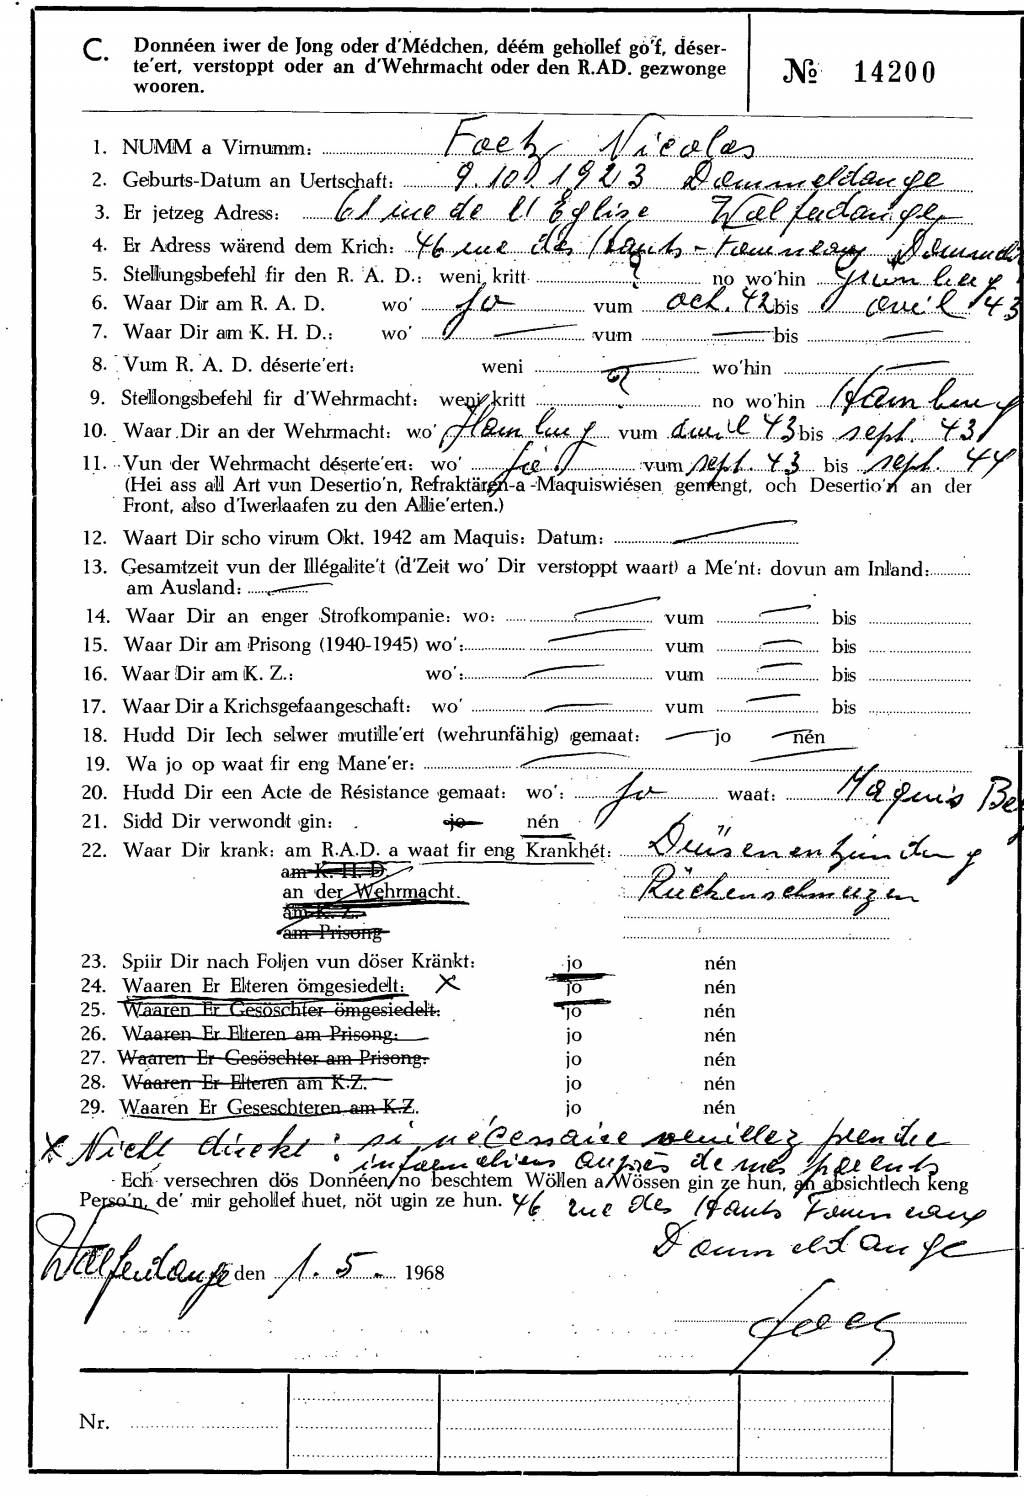 C. Donnéen iwer de Jong oder d'Médchen, déém gehollef go'f, déser-
te'ert, verstoppt oder an d'Wehrmacht oder den R.AD. gezwonge
wooren.
№ 14200
1. NUMM a Virnumm: Foetz Nicolas
2. Geburts-Datum an Uertschaft: 9.10.1923 Dommeldange
3. Er jetzeg Adress: 61 rue de l'Eglise Walferdange
4. Er Adress wärend dem Krich: 46 rue des Hauts-Fourneaux Dommeld
5. Stellungsbefehl fir den R. A. D.: weni kritt ? no wo'hin Grünberg
6. Waar Dir am R. A. D. wo' jo vum oct. 42 bis avril 43
7. Waar Dir am K. H. D.: wo' — vum — bis —
8. Vum R. A. D. déserte'ert: weni — wo'hin —
9. Stellongsbefehl fir d'Wehrmacht: weni kritt ? no wo'hin Hamburg
10. Waar Dir an der Wehrmacht: wo' Hamburg vum avril 43 bis sept. 43
11. Vun der Wehrmacht déserte'ert: wo' jo vum sept. 43 bis sept. 44
(Hei ass all Art vun Desertio'n, Refraktären-a -Maquiswiésen gemengt, och Desertio'n an der
Front, also d'Iwerlaafen zu den Allie'erten.)
12. Waart Dir scho virum Okt. 1942 am Maquis: Datum: —
13. Gesamtzeit vun der Illégalite't (d'Zeit wo' Dir verstoppt waart) a Me'nt: dovun am Inland:
am Ausland: —
14. Waar Dir an enger Strofkompanie: wo: — vum — bis
15. Waar Dir am Prisong (1940-1945) wo': — vum — bis
16. Waar Dir am K. Z.: wo': — vum — bis
17. Waar Dir a Krichsgefaangeschaft: wo' — vum — bis
18. Hudd Dir Iech selwer mutille'ert (wehrunfähig) gemaat: — jo — nén
19. Wa jo op waat fir eng Mane'er: —
20. Hudd Dir een Acte de Résistance gemaat: wo': jo waat: Maquis Be
21. Sidd Dir verwondt gin: jo nén
22. Waar Dir krank: am R.A.D. a waat fir eng Krankhét: Drüsenentzündung
am K. H. D.
an der Wehrmacht. Rückenschmerzen
am K. Z.
am Prisong
23. Spiir Dir nach Foljen vun döser Kränkt: jo nén
24. Waaren Er Elteren ömgesiedelt: x jo nén
25. Waaren Er Gesöschter ömgesiedelt: jo nén
26. Waaren Er Elteren am Prisong: jo nén
27. Waaren Er Gesöschter am Prisong: jo nén
28. Waaren Er Elteren am K.Z. jo nén
29. Waaren Er Geseschteren am K.Z. jo nén
x Nicht direkt: si nécessaire veuillez prendre
informations auprès de mes parents
Ech versechren dös Donnéen no beschtem Wöllen a Wössen gin ze hun, an absichtlech keng
Perso'n, de' mir gehollef huet, nöt ugin ze hun. 46 rue des Hauts Fourneaux
Dommeldange
Walferdange den 1. 5. 1968
Foetz
Nr.